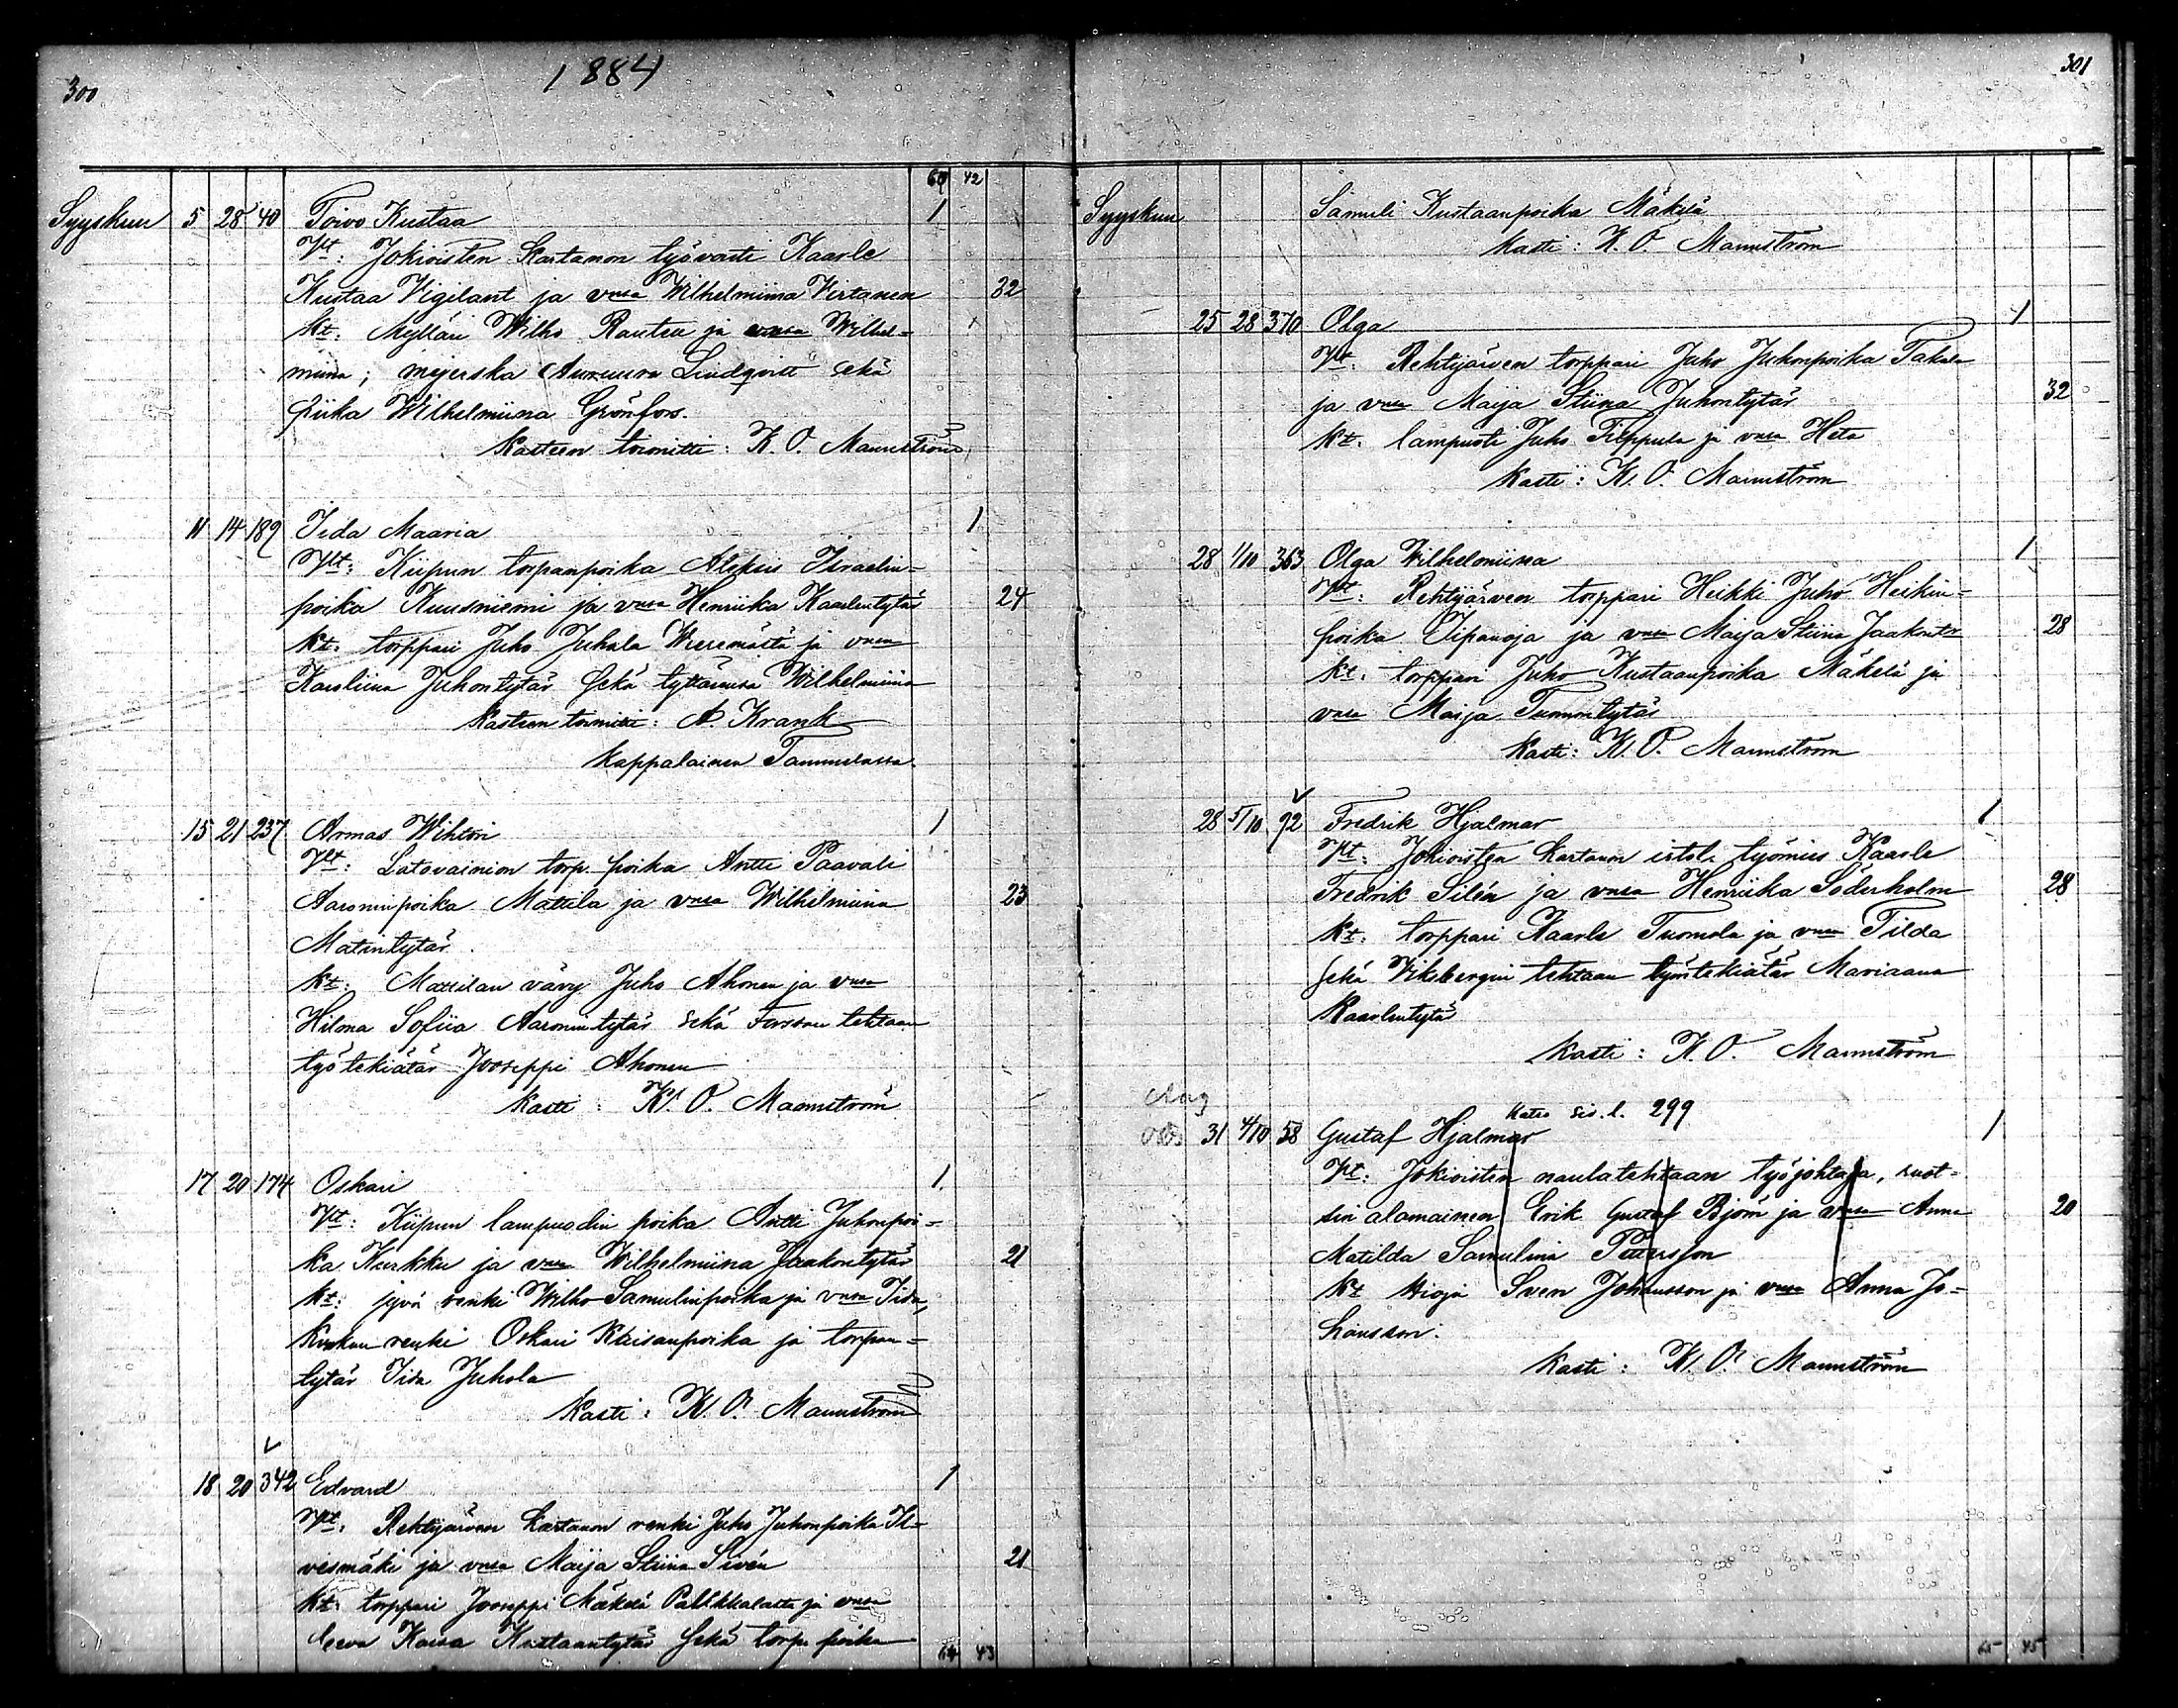 300
1884
60 42
Syyskuu 5 28 40 Toivo Kustaa 1
Vht: Jokioisten kartanon työvouti Kaarle
Kustaa Vigilant ja vmsa Wilhelmiina Virtanen 32
kt: Mylläri Wilho Rautsu ja vmsa Wilhel-
miina; mejerska Auruura Lindqvist sekä
piika Wilhelmiina Grönfors.
Kasteen toimitti: K. O. Mannström
11 14 189 Iida Maaria 1
Vht: Kiipun torpanpoika Aleksis Israelin-
poika Kuusniemi ja vmsa Henriika Kaarlentytär 24
kt: torppari Juho Juhala Wieremältä ja vmsa
Karoliina Juhontytär sekä tyttärensä Wilhelmiina
Kasteen toimitti: A. Krank
kappalainen Tammelassa.
15 21 237 Armas Wihtori 1
Vht: Latovainion torp. poika Antti Paavali
Aaroninpoika Mattila ja vmsa Wilhelmiina 23
Matintytär.
kt: Mattilan vävy Juho Ahonen ja vmsa
Hilma Sofiia Aaronintytär sekä Forssan tehtaan
työtekiätär Jooseppi Ahonen
Kasti: K. O. Mannström
17 20 174 Oskari 1
Vht: Kiipun lampuodin poika Antti Juhonpoi-
ka Kurkku ja vmsa Wilhelmiina Jaakontytär 21
kt: jyvä renki Wilho Samulinpoika ja vmsa Iida,
Kurkun renki Oskari Kaisanpoika ja torpan-
tytär Iida Juhola
Kasti: K. O. Mannström
18 20 342 Edvard 1
Vht: Rehtijärven kartanon renki Juho Juhonpoika Il-
vesmäki ja vmsa Maija Stiina Sivén 21
kt: torppari Jooseppi Mäkelä ja vmsa
Eeva Kaisa Kustaantytär sekä torp. poika
64 43
301
Syyskuu Samuli Kustaanpoika Mäkelä
Kasti: K. O. Mannström
25 28 370 Olga 1
Vht: Rehtijärven torppari Juho Juhonpoika Takala
ja vmsa Maija Stiina Juhontytär 32
kt: lampuoti Juho Fileppula ja vmsa Heta
Kasti: K. O. Mannström
28 1/10 363 Olga Wilhelmiina 1
Vht: Rehtijärven torppari Heikki Juho Heikin-
poika Ojpanoja ja vmsa Maija Stiina Jaakontr 28
kt: torppari Juho Kustaanpoika Mäkelä ja
vmsa Maija Tuomontytär
Kasti: K. O. Mannström
28 5/10 92 Fredrik Hjalmar 1
Vht: Jokioisten kartanon työmies Kaarle
Fredrik Silén ja vmsa Henriika Söderholm 28
kt: torppari Kaarle Tuomola ja vmsa Tilda
sekä Vikebergin tehtaan työntekiätär Mariaana
Kaarlentytär
Kasti: K. O. Mannström
Aug
Katso siv. l. 299
31 4/10 58 Gustaf Hjalmar 1
Vht: Jokioisten naulatehtaan työjohtaja, ruot-
sin alamainen Erik Gustaf Björn ja vmsa Anna 20
Matilda Samulina Pettersson
kt Sven Johansson ja vmsa Anna Jo-
hansson.
Kasti: K. O. Mannström
65 45